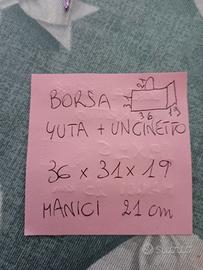 BORSA
36 19
YUTA + UNCINETTO
36 x 31 x 19
MANICI 21 cm
subito